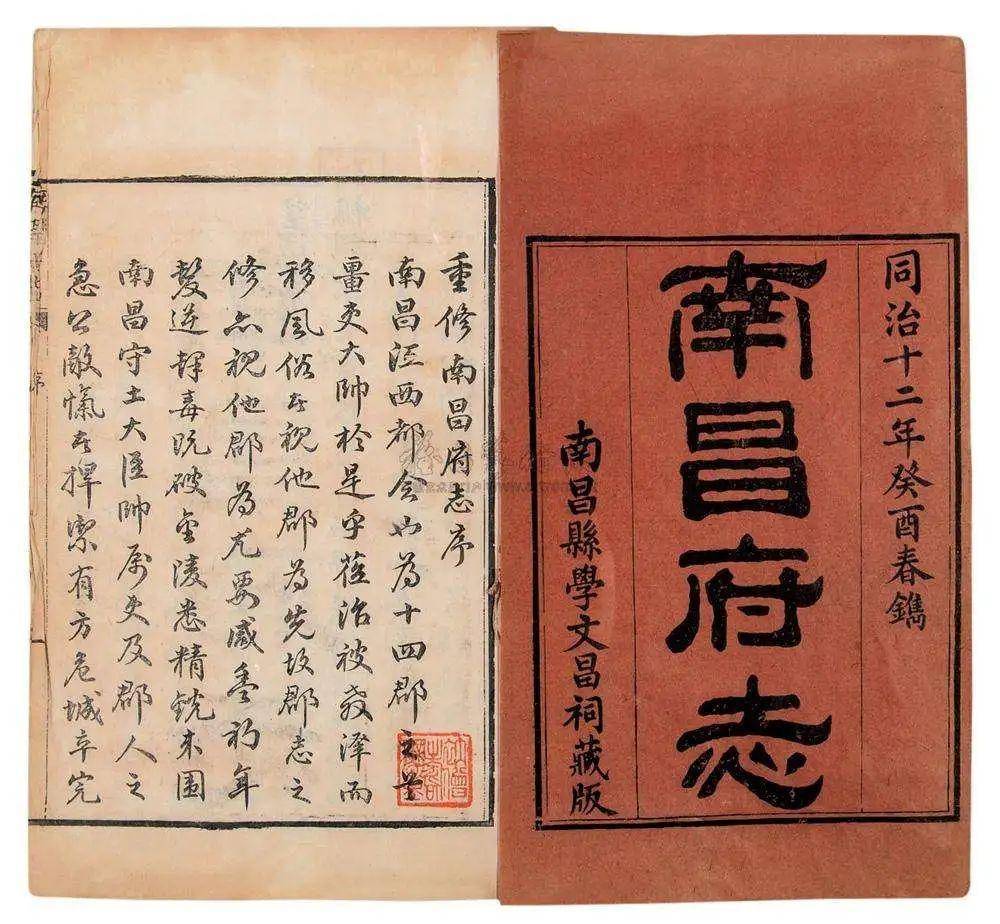 同治十二年癸酉春鐫
南昌府志
南昌縣學文昌祠藏版
重修南昌府志序
南昌江西都會也為十四郡之
疆吏大帥於是乎蒞治被教澤而
移風俗者視他郡為先故郡志之
修亦視他郡為尤要咸豐初年
髮逆肆毒既破金陵悉精銳來圍
南昌守土大臣帥屬吏及郡人之
急公敵愾者捍禦有方危城卒完